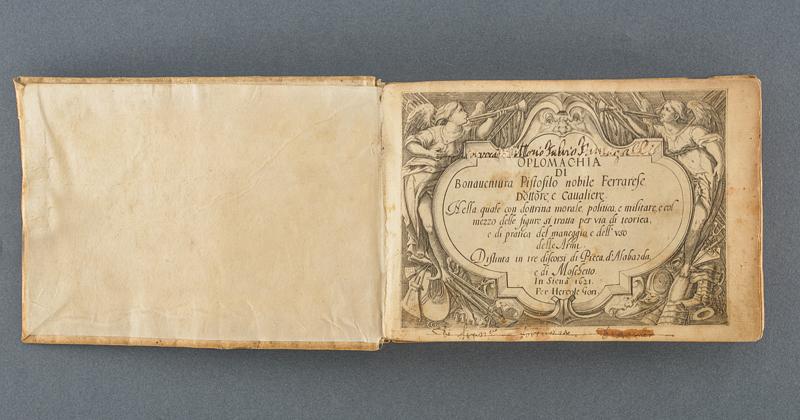 OPLOMACHIA
DI
Bonauentura Pistofilo nobile Ferrarese
Dottore e Caualiere.
Nella quale con dottrina morale, politica, e militare, e col
mezzo delle figure si tratta per via di teorica,
e di pratica del maneggio, e dell' vso
delle Armi.
Distinta in tre discorsi di Picca, d'Alabarda,
e di Moschetto.
In Siena 1621.
Per Hercole Gori.